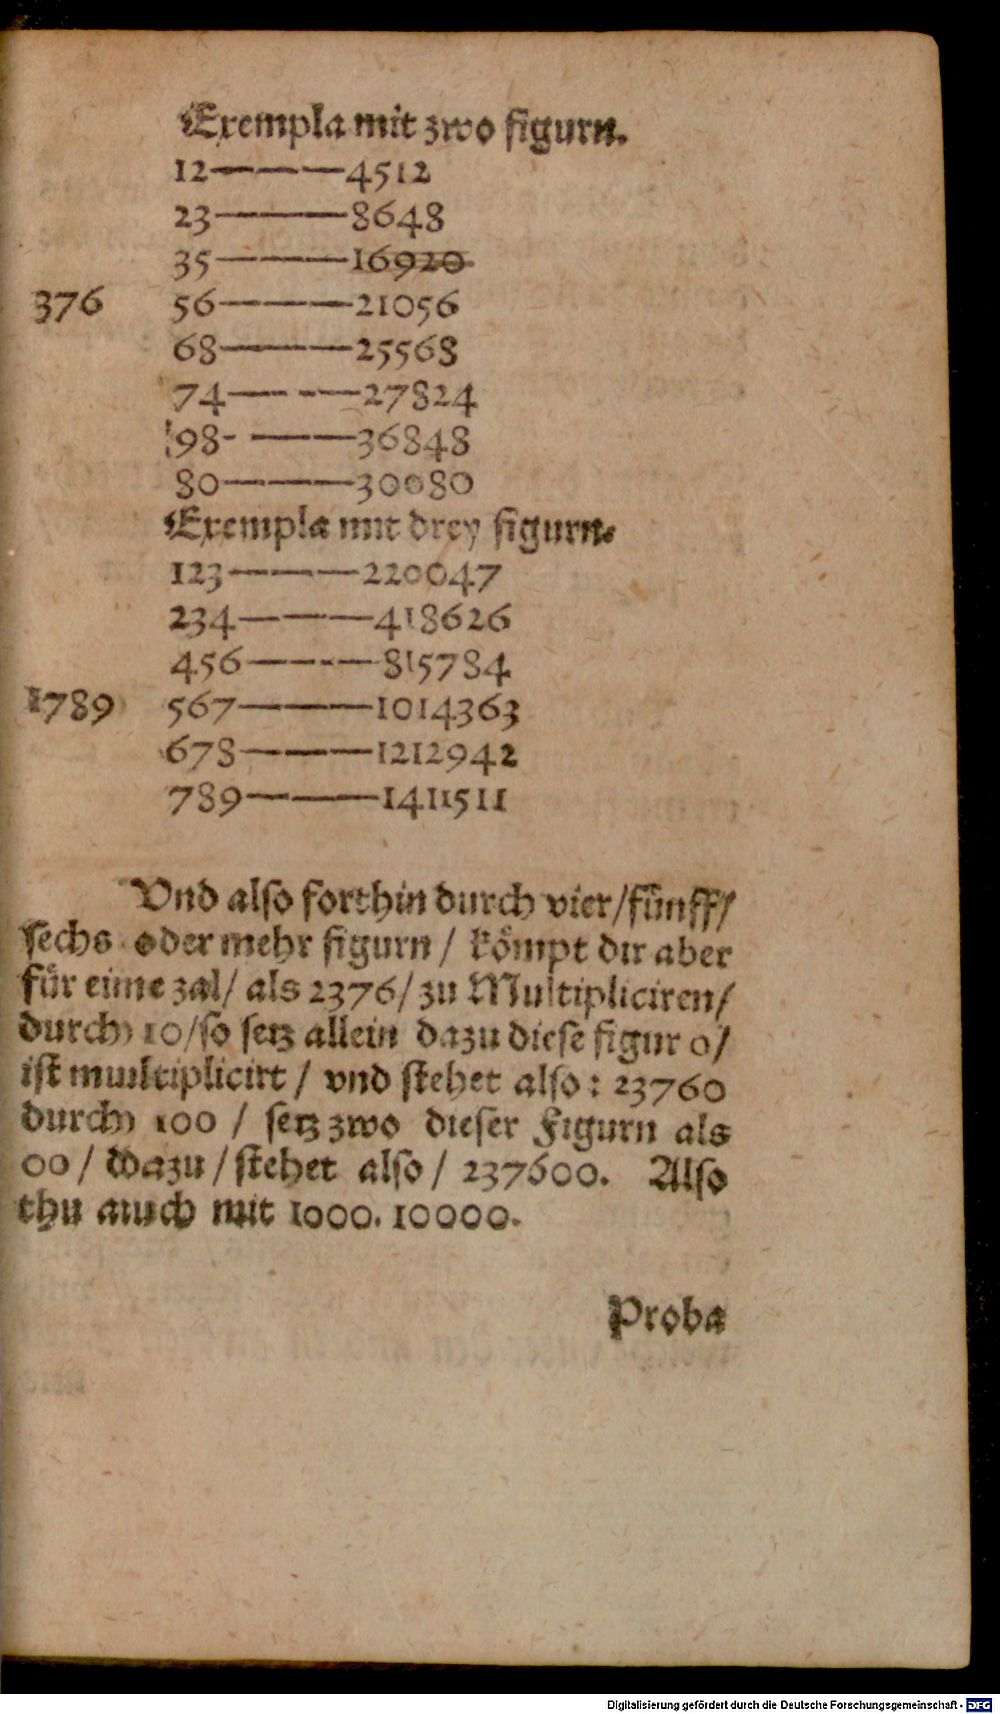 Exempla mit zwo figurn.
12———4512
23———8648
35———16920
376 56———21056
68———25568
74———27824
98———36848
80———30080
Exempla mit drey figurn.
123———220047
234———418626
456———815784
1789 567———1014363
678———1212942
789———1411511
Vnd also forthin durch vier/fünff/
sechs oder mehr figurn / kömpt dir aber
für eine zal/ als 2376/ zu Multipliciren/
durch 10/so setz allein dazu diese figur 0/
ist multiplicirt / vnd stehet also: 23760
durch 100 / setz zwo dieser Figurn als
00/ dazu / stehet also / 237600. Also
thu auch mit 1000. 10000.
Proba
Digitalisierung gefördert durch die Deutsche Forschungsgemeinschaft - DFG